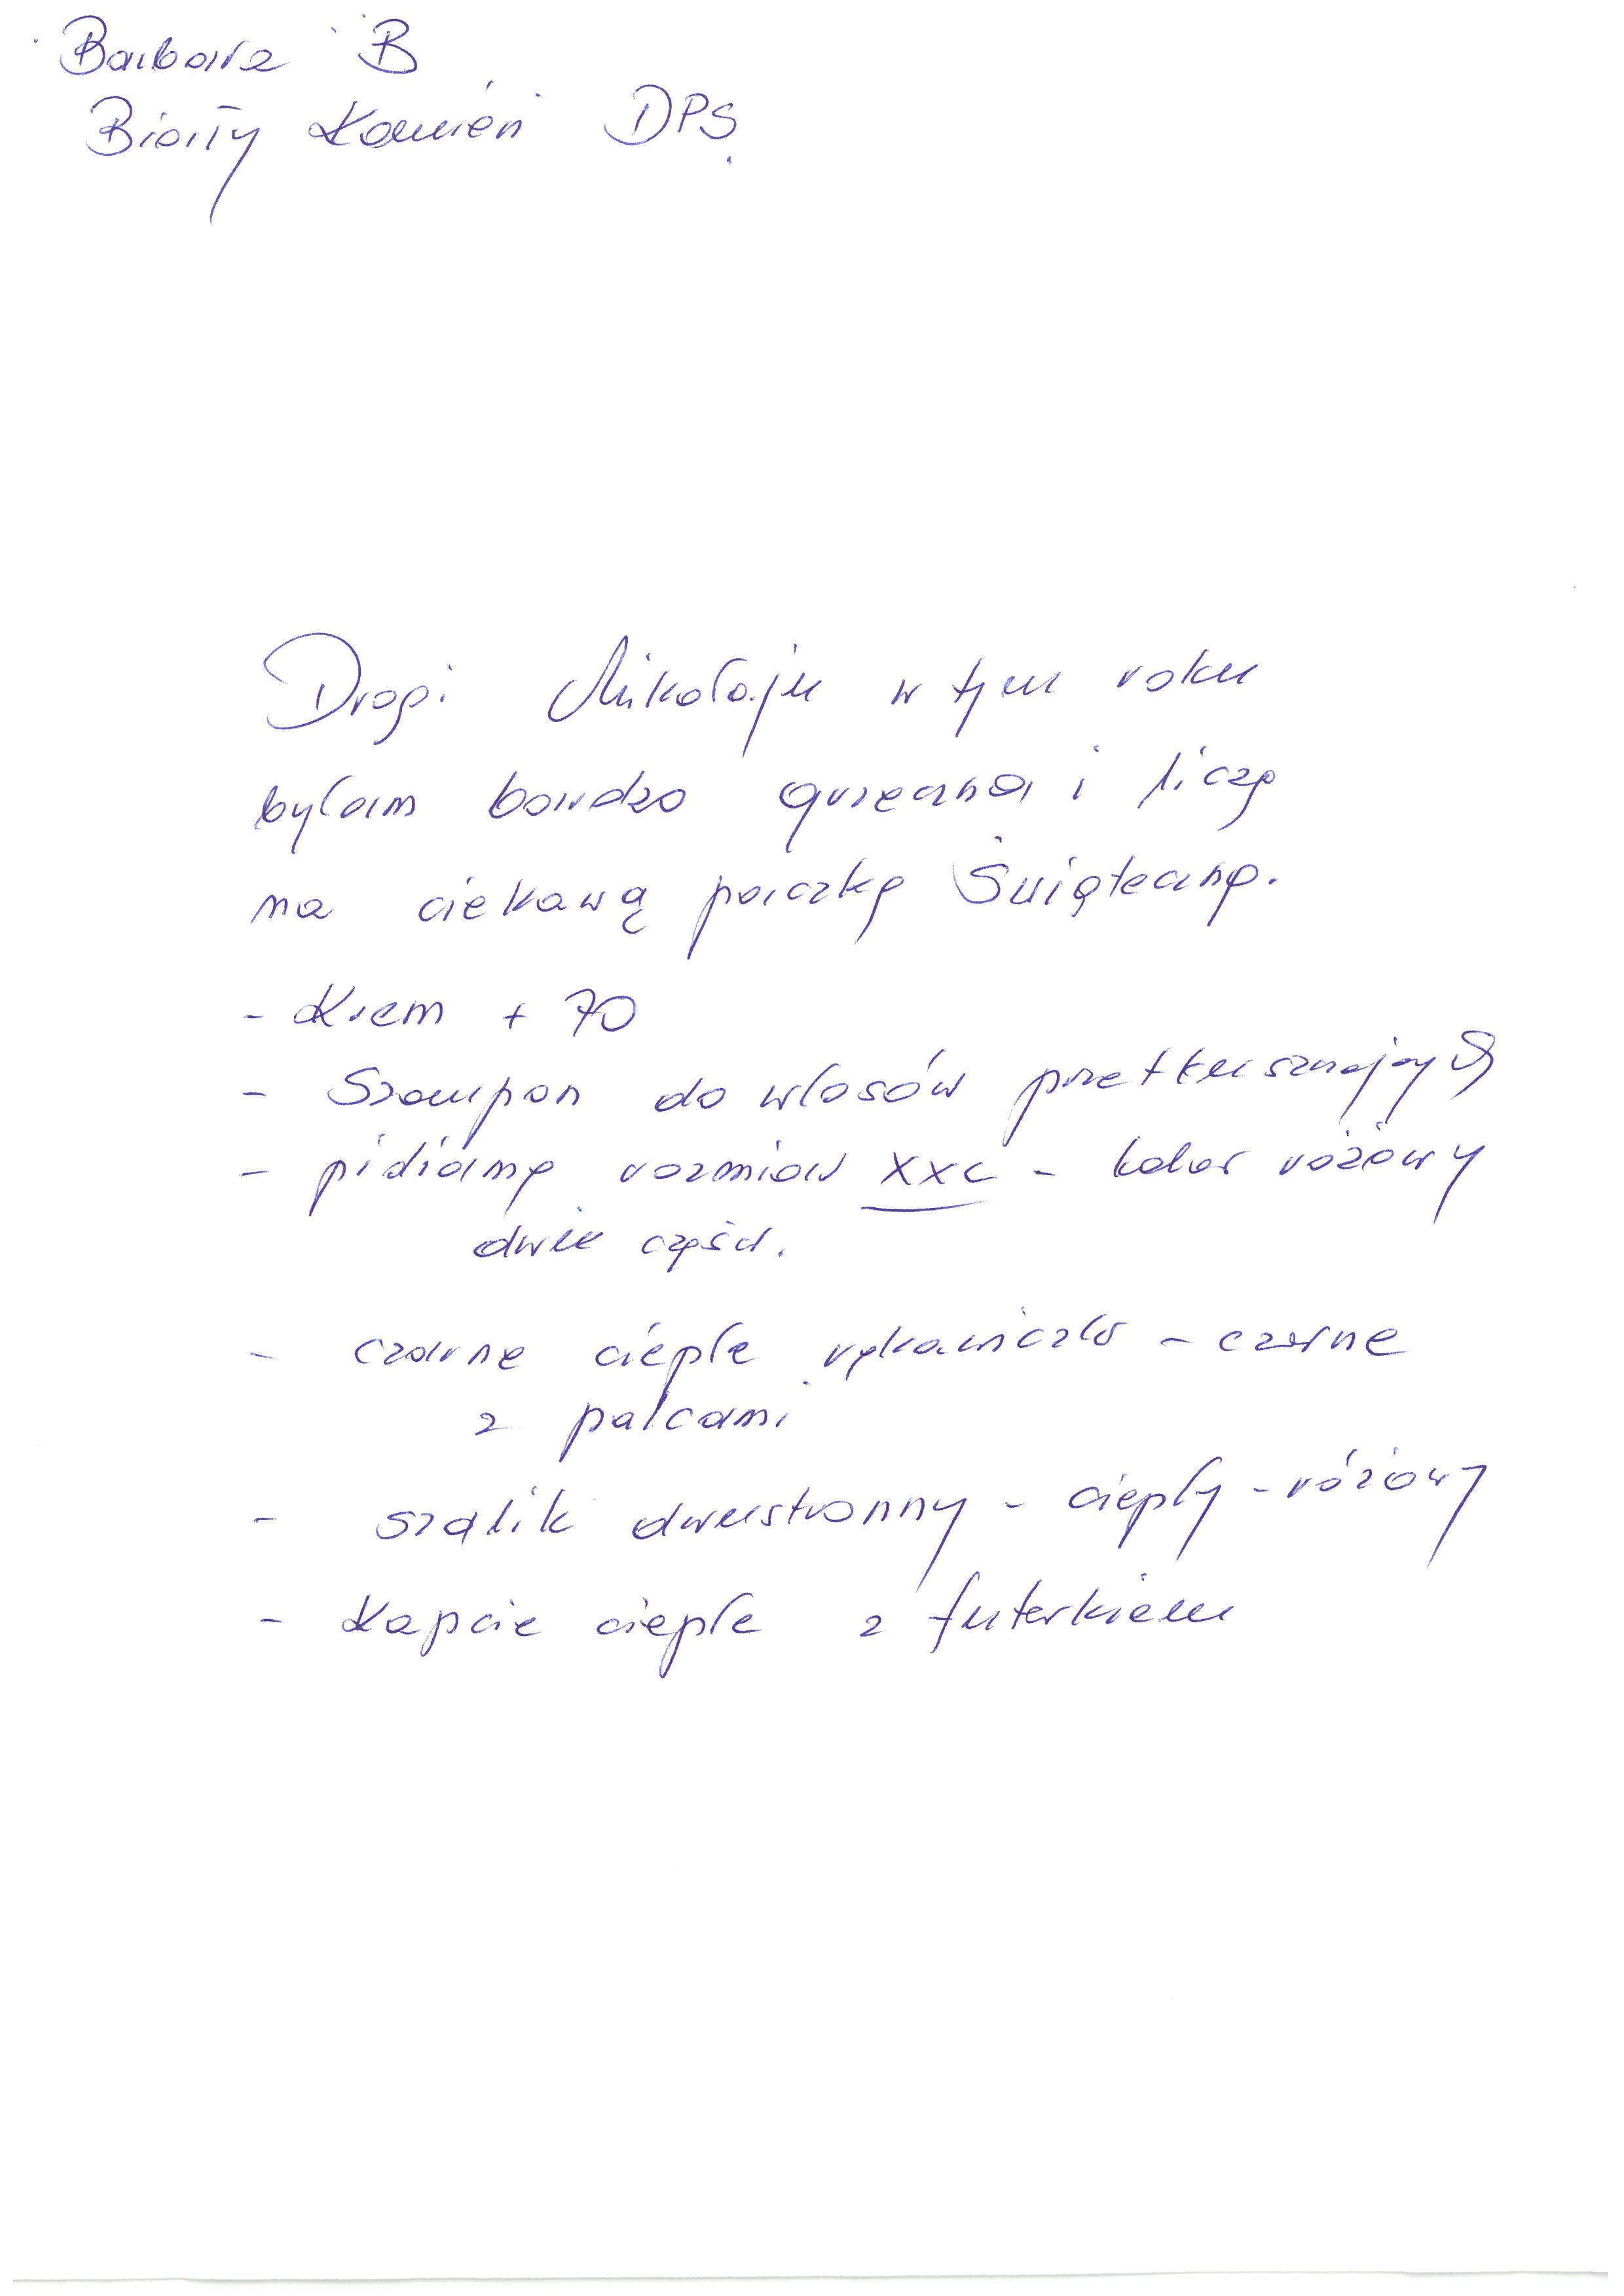 Barbara B
Biały Kamień DPS
Drogi Mikołaju w tym roku
byłam bardzo grzeczna i liczę
na ciekawą paczkę Świąteczną.
- Krem + 70
- Szampon do włosów przetłuszczających
- pidiamę rozmiar XXL - kolor różowy
dwie części.
- czarne ciepłe rękawiczki - czarne
z palcami
- szalik dwustronny - ciepły - różowy
- Kapcie ciepłe z futerkiem